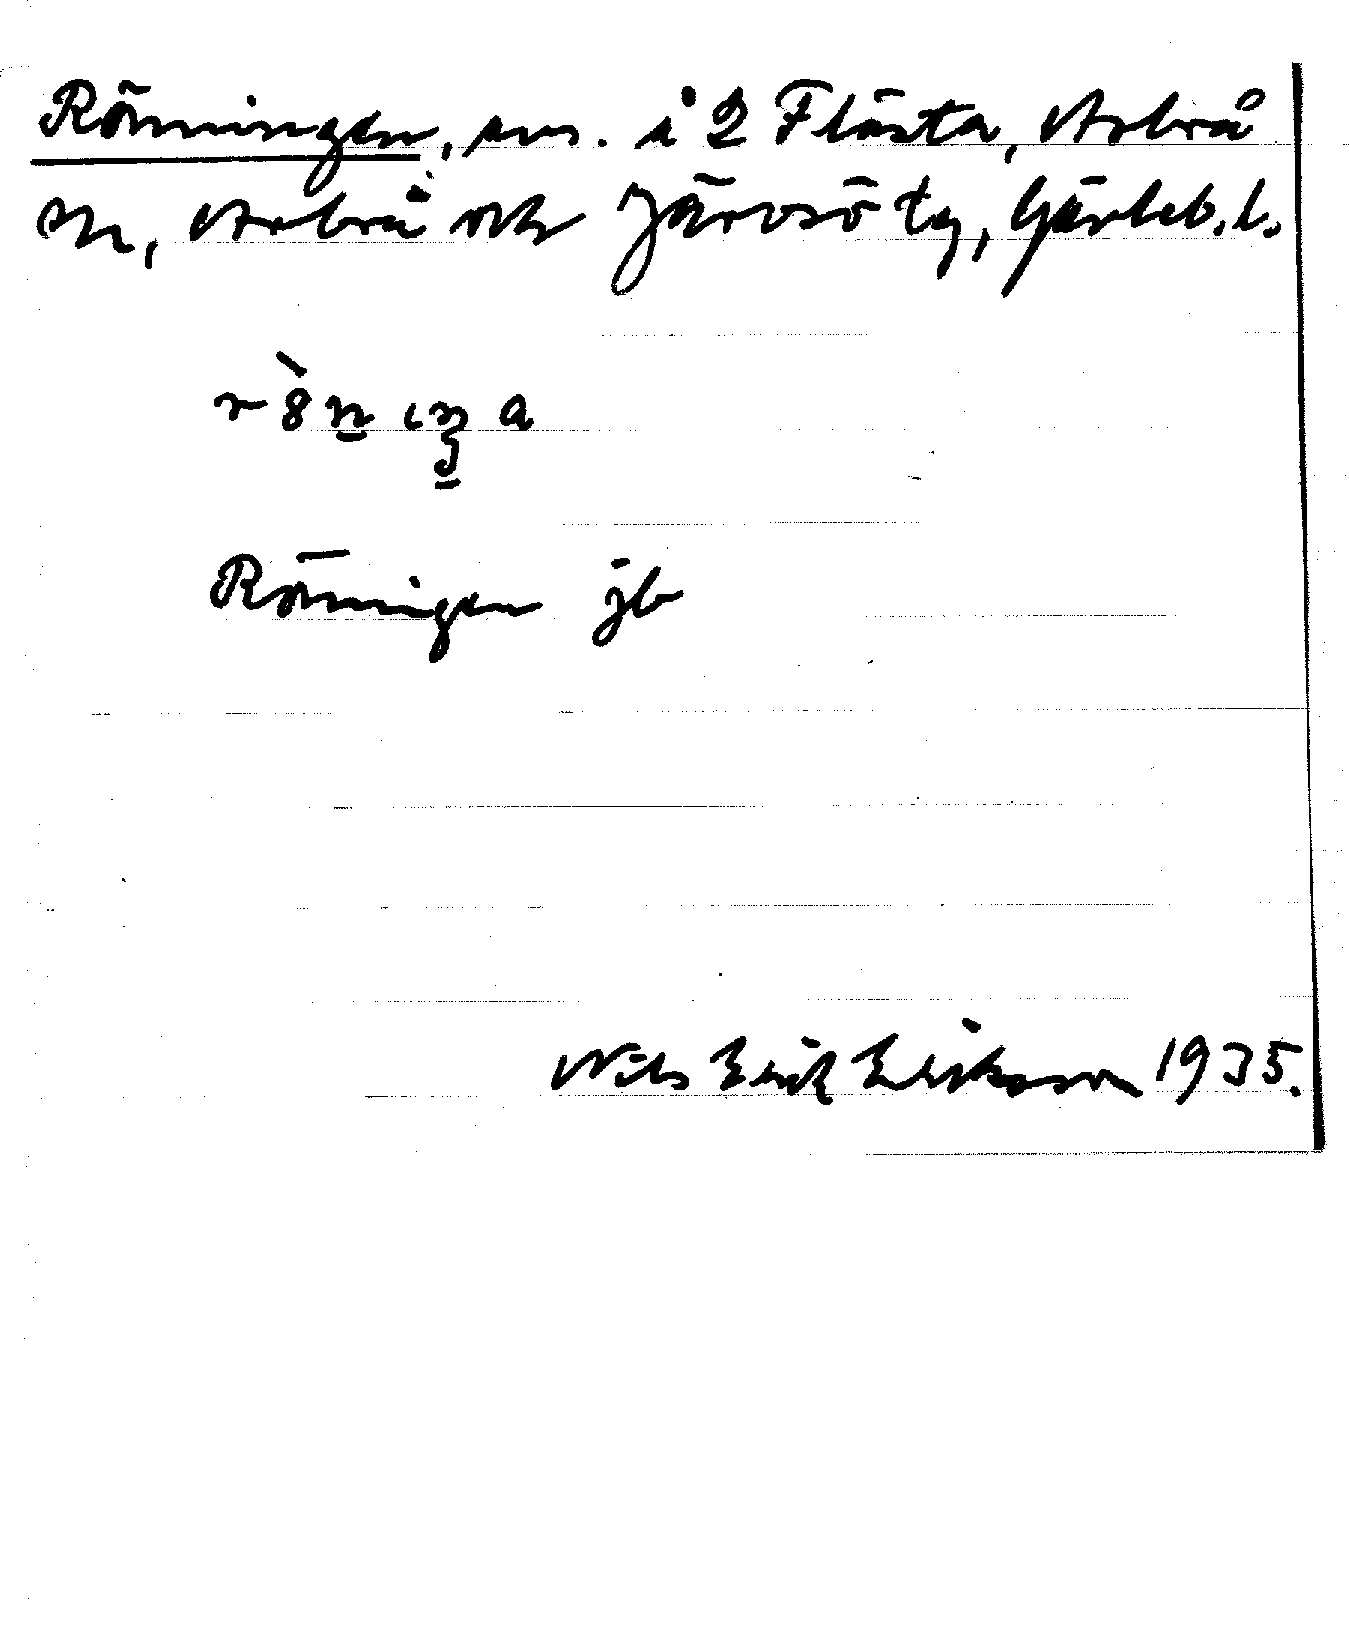 Rönningen, sms. i 2 Flästa, Arbrå
sn, Arbrå och Järvsö tg, Gävleb. l.
Rönningen jb
Nils Erik Eriksson 1935.